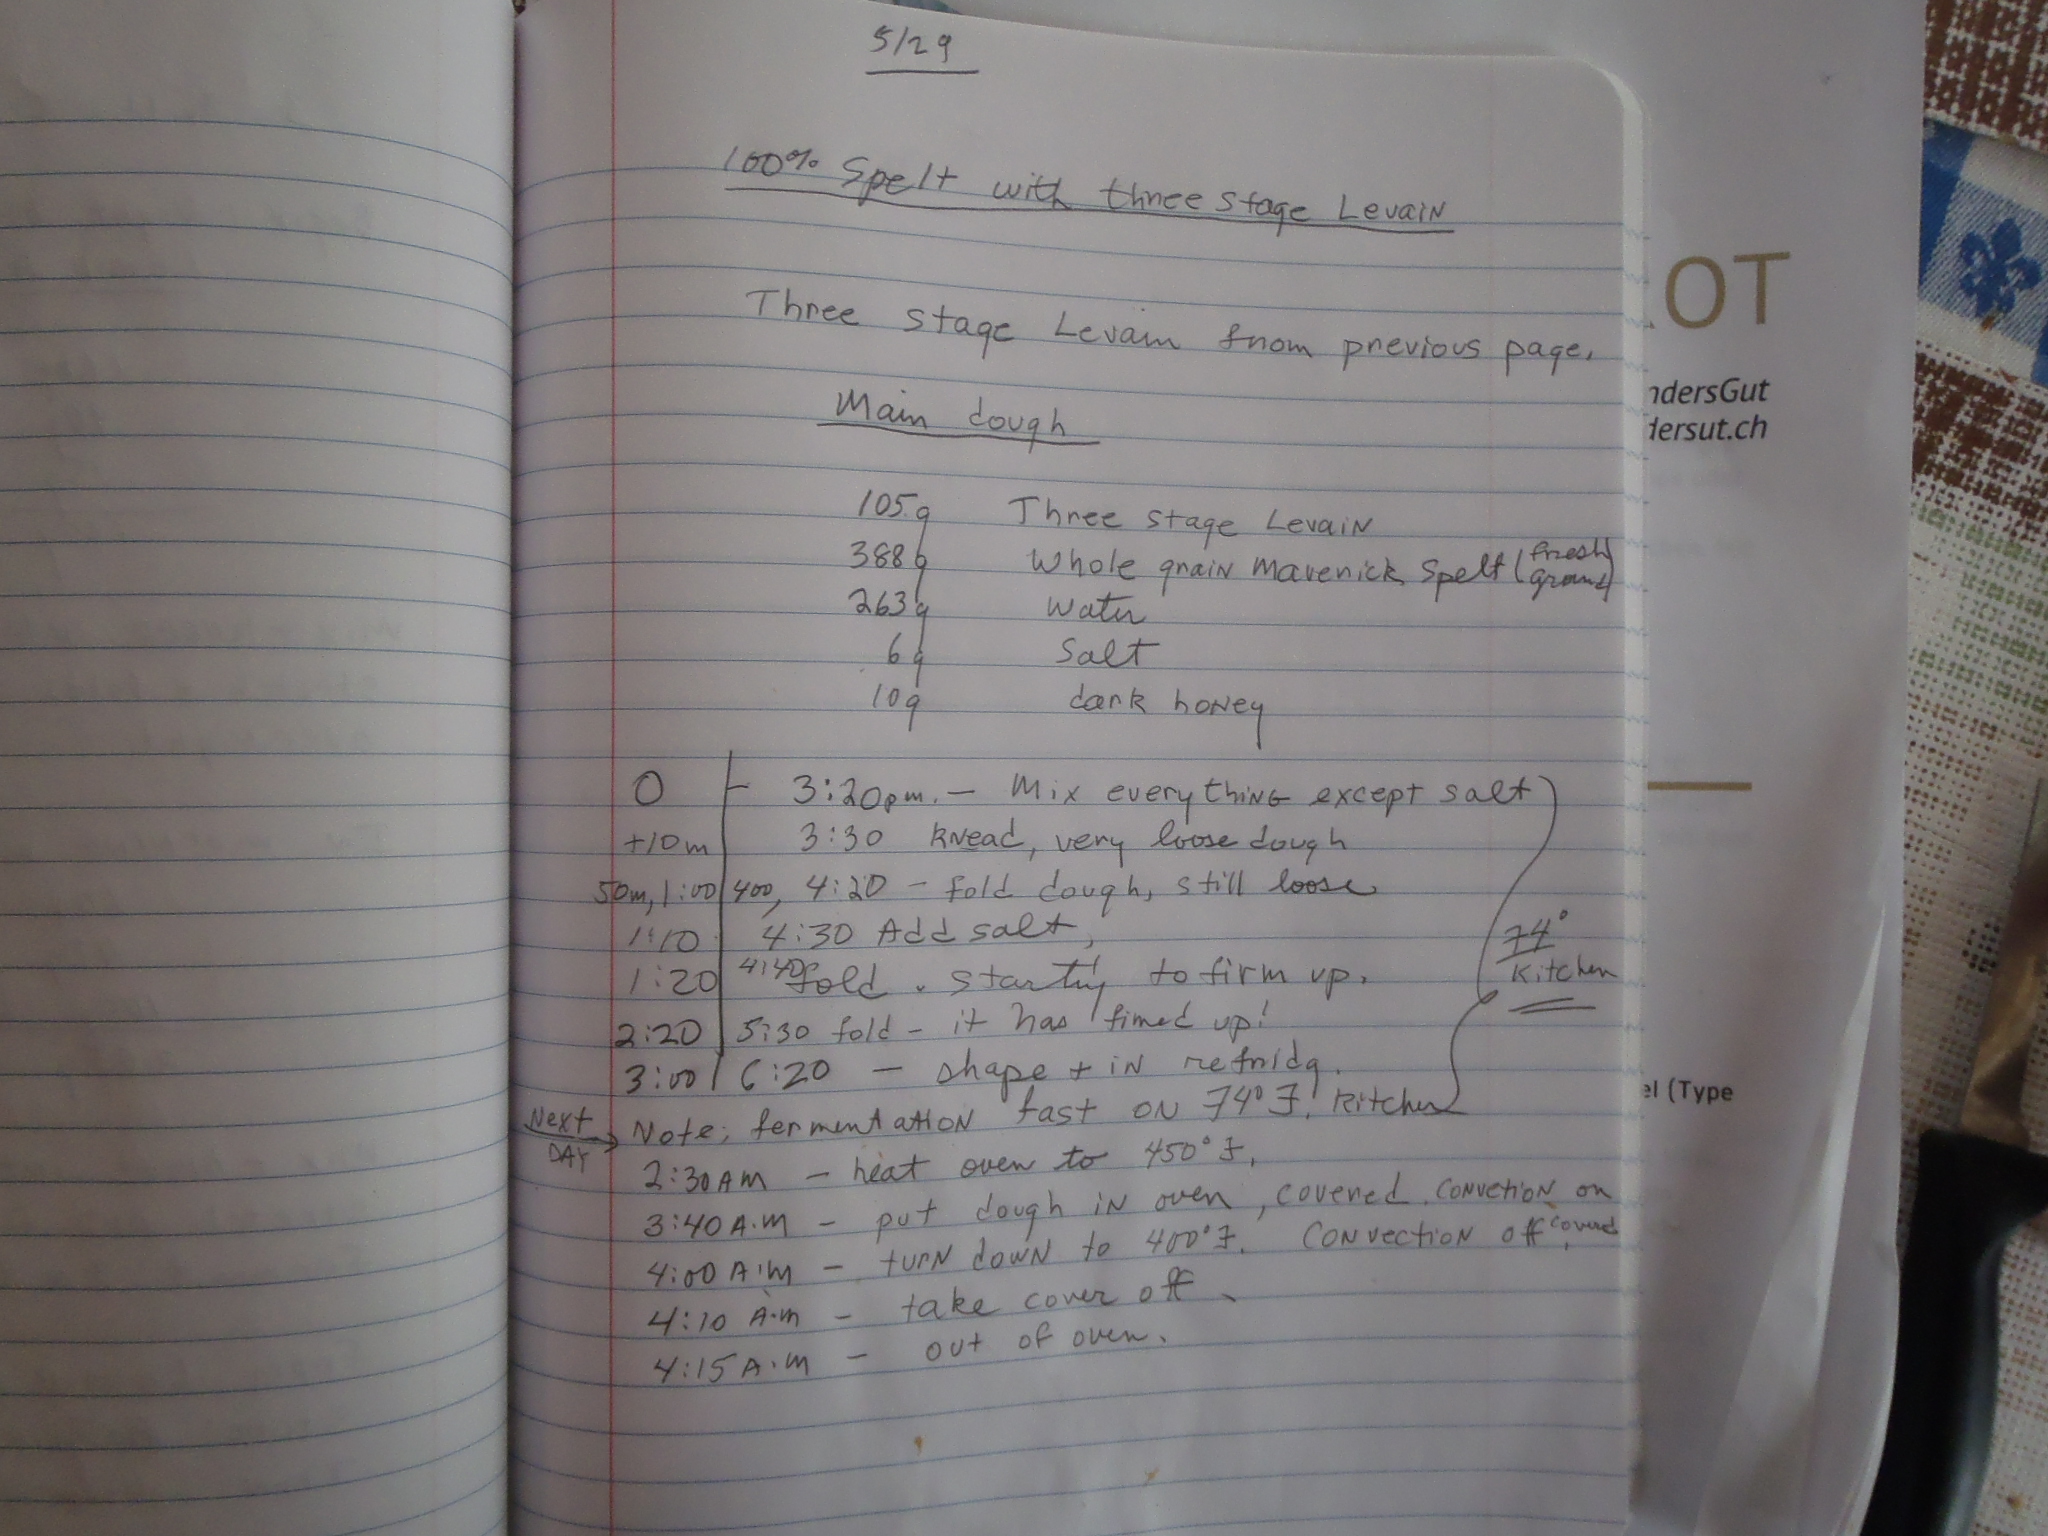 5/29
100% Spelt with three stage Levain
Three stage Levain from previous page.
Main dough
105g Three stage Levain
388g Whole grain Maverick Spelt (fresh ground)
263g Water
6g Salt
10g dark honey
0 3:20pm. - Mix everything except salt
+10m 3:30 knead, very loose dough
50m, 1:00 400, 4:20 - fold dough, still loose
1:10 4:30 Add salt,
1:20 4:40 fold. starting to firm up.
2:20 5:30 fold - it has fimed up!
3:00 6:20 - shape + in refridg.
74° Kitchen
Note; fermentation fast on 74°F. kitchen
Next DAY
2:30 AM - heat oven to 450°F.
3:40 A.M - put dough in oven, covered. convetion on
4:00 A.M - turn down to 400°F. Convection off, covered
4:10 A.M - take cover off.
4:15 A.M - out of oven.
OT
ndersGut
dersut.ch
el (Type